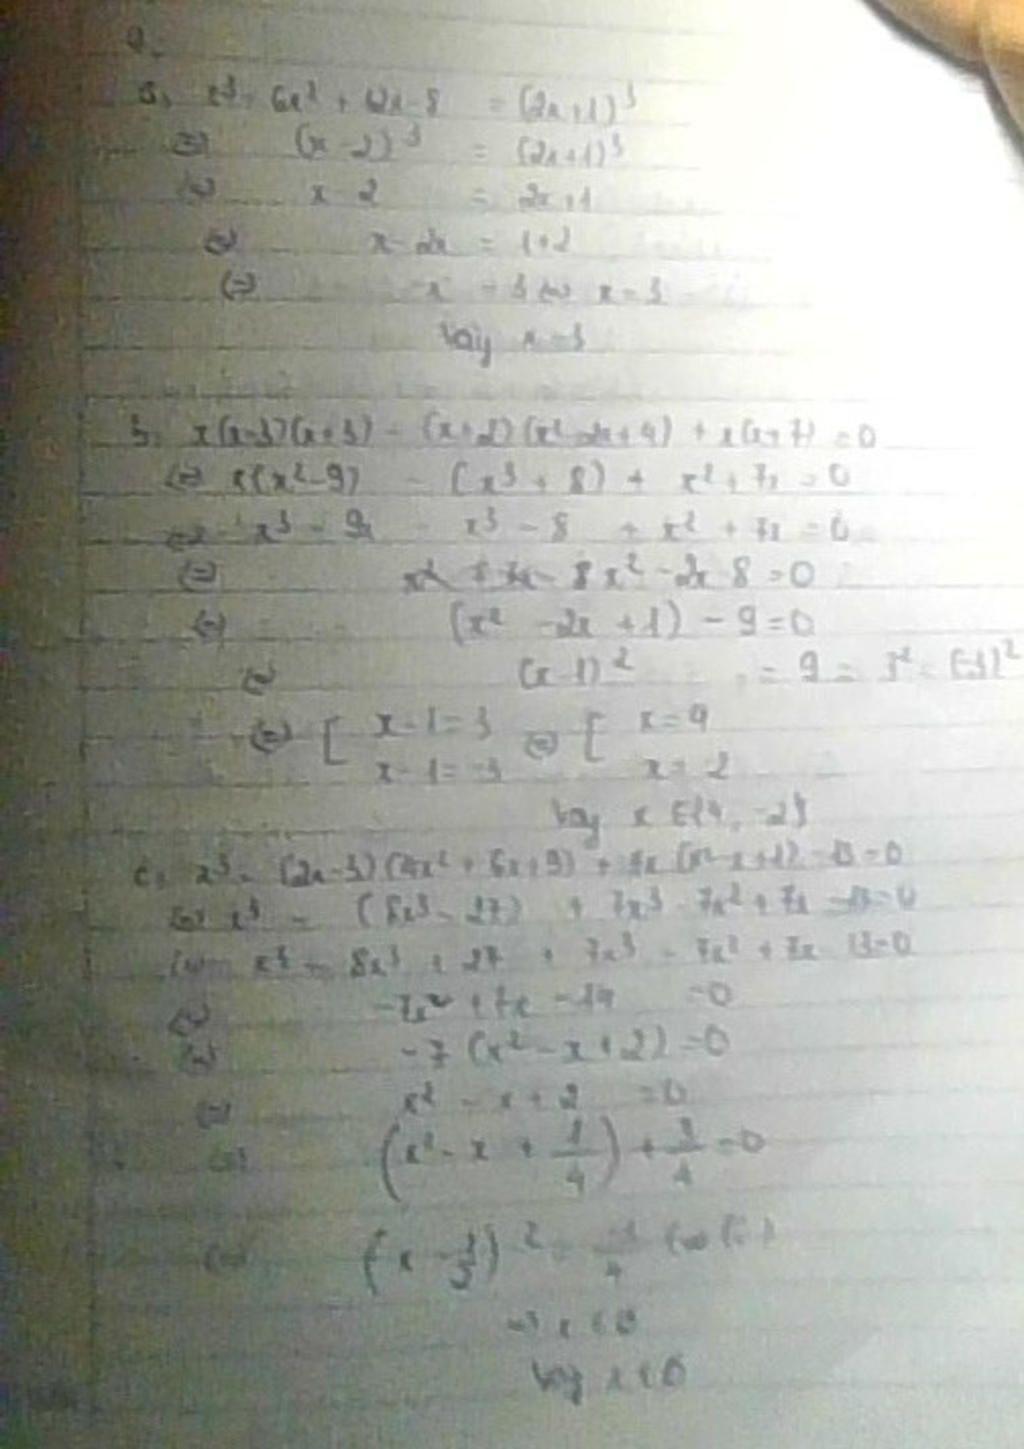 a, x³ - 6x² + 12x - 8 = (2x+1)³
⇔ (x - 2)³ = (2x+1)³
⇔ x - 2 = 2x+1
⇔ x - 2x = 1+2
⇔ -x = 3 ⇔ x = -3
Vậy x = -3
b, x(x-3)(x+3) - (x+2)(x²-2x+4) + x(x+7) = 0
⇔ x(x²-9) - (x³ + 8) + x² + 7x = 0
⇔ x³ - 9x - x³ - 8 + x² + 7x = 0
⇔ x² - 2x - 8 = 0
⇔ (x² - 2x + 1) - 9 = 0
⇔ (x-1)² = 9 = 3² = (-3)²
⇔ [ x-1=3 ⇔ [ x=4
x-1=-3 x=-2
Vậy x ∈ {4, -2}
c, x³ - (2x-3)(4x²+6x+9) + 7x(x²-x+1) - 13=0
⇔ x³ - (8x³ - 27) + 7x³ - 7x² + 7x - 13=0
⇔ x³ - 8x³ + 27 + 7x³ - 7x² + 7x 13=0
⇔ -7x² + 7x - 14 = 0
⇔ -7 (x² - x + 2) = 0
⇔ x² - x + 2 = 0
⇔ (x² - x + 1/4) + /4 = 0
⇔ (x - )² = /4
⇒ x ∈ ∅
Vậy x ∈ ∅